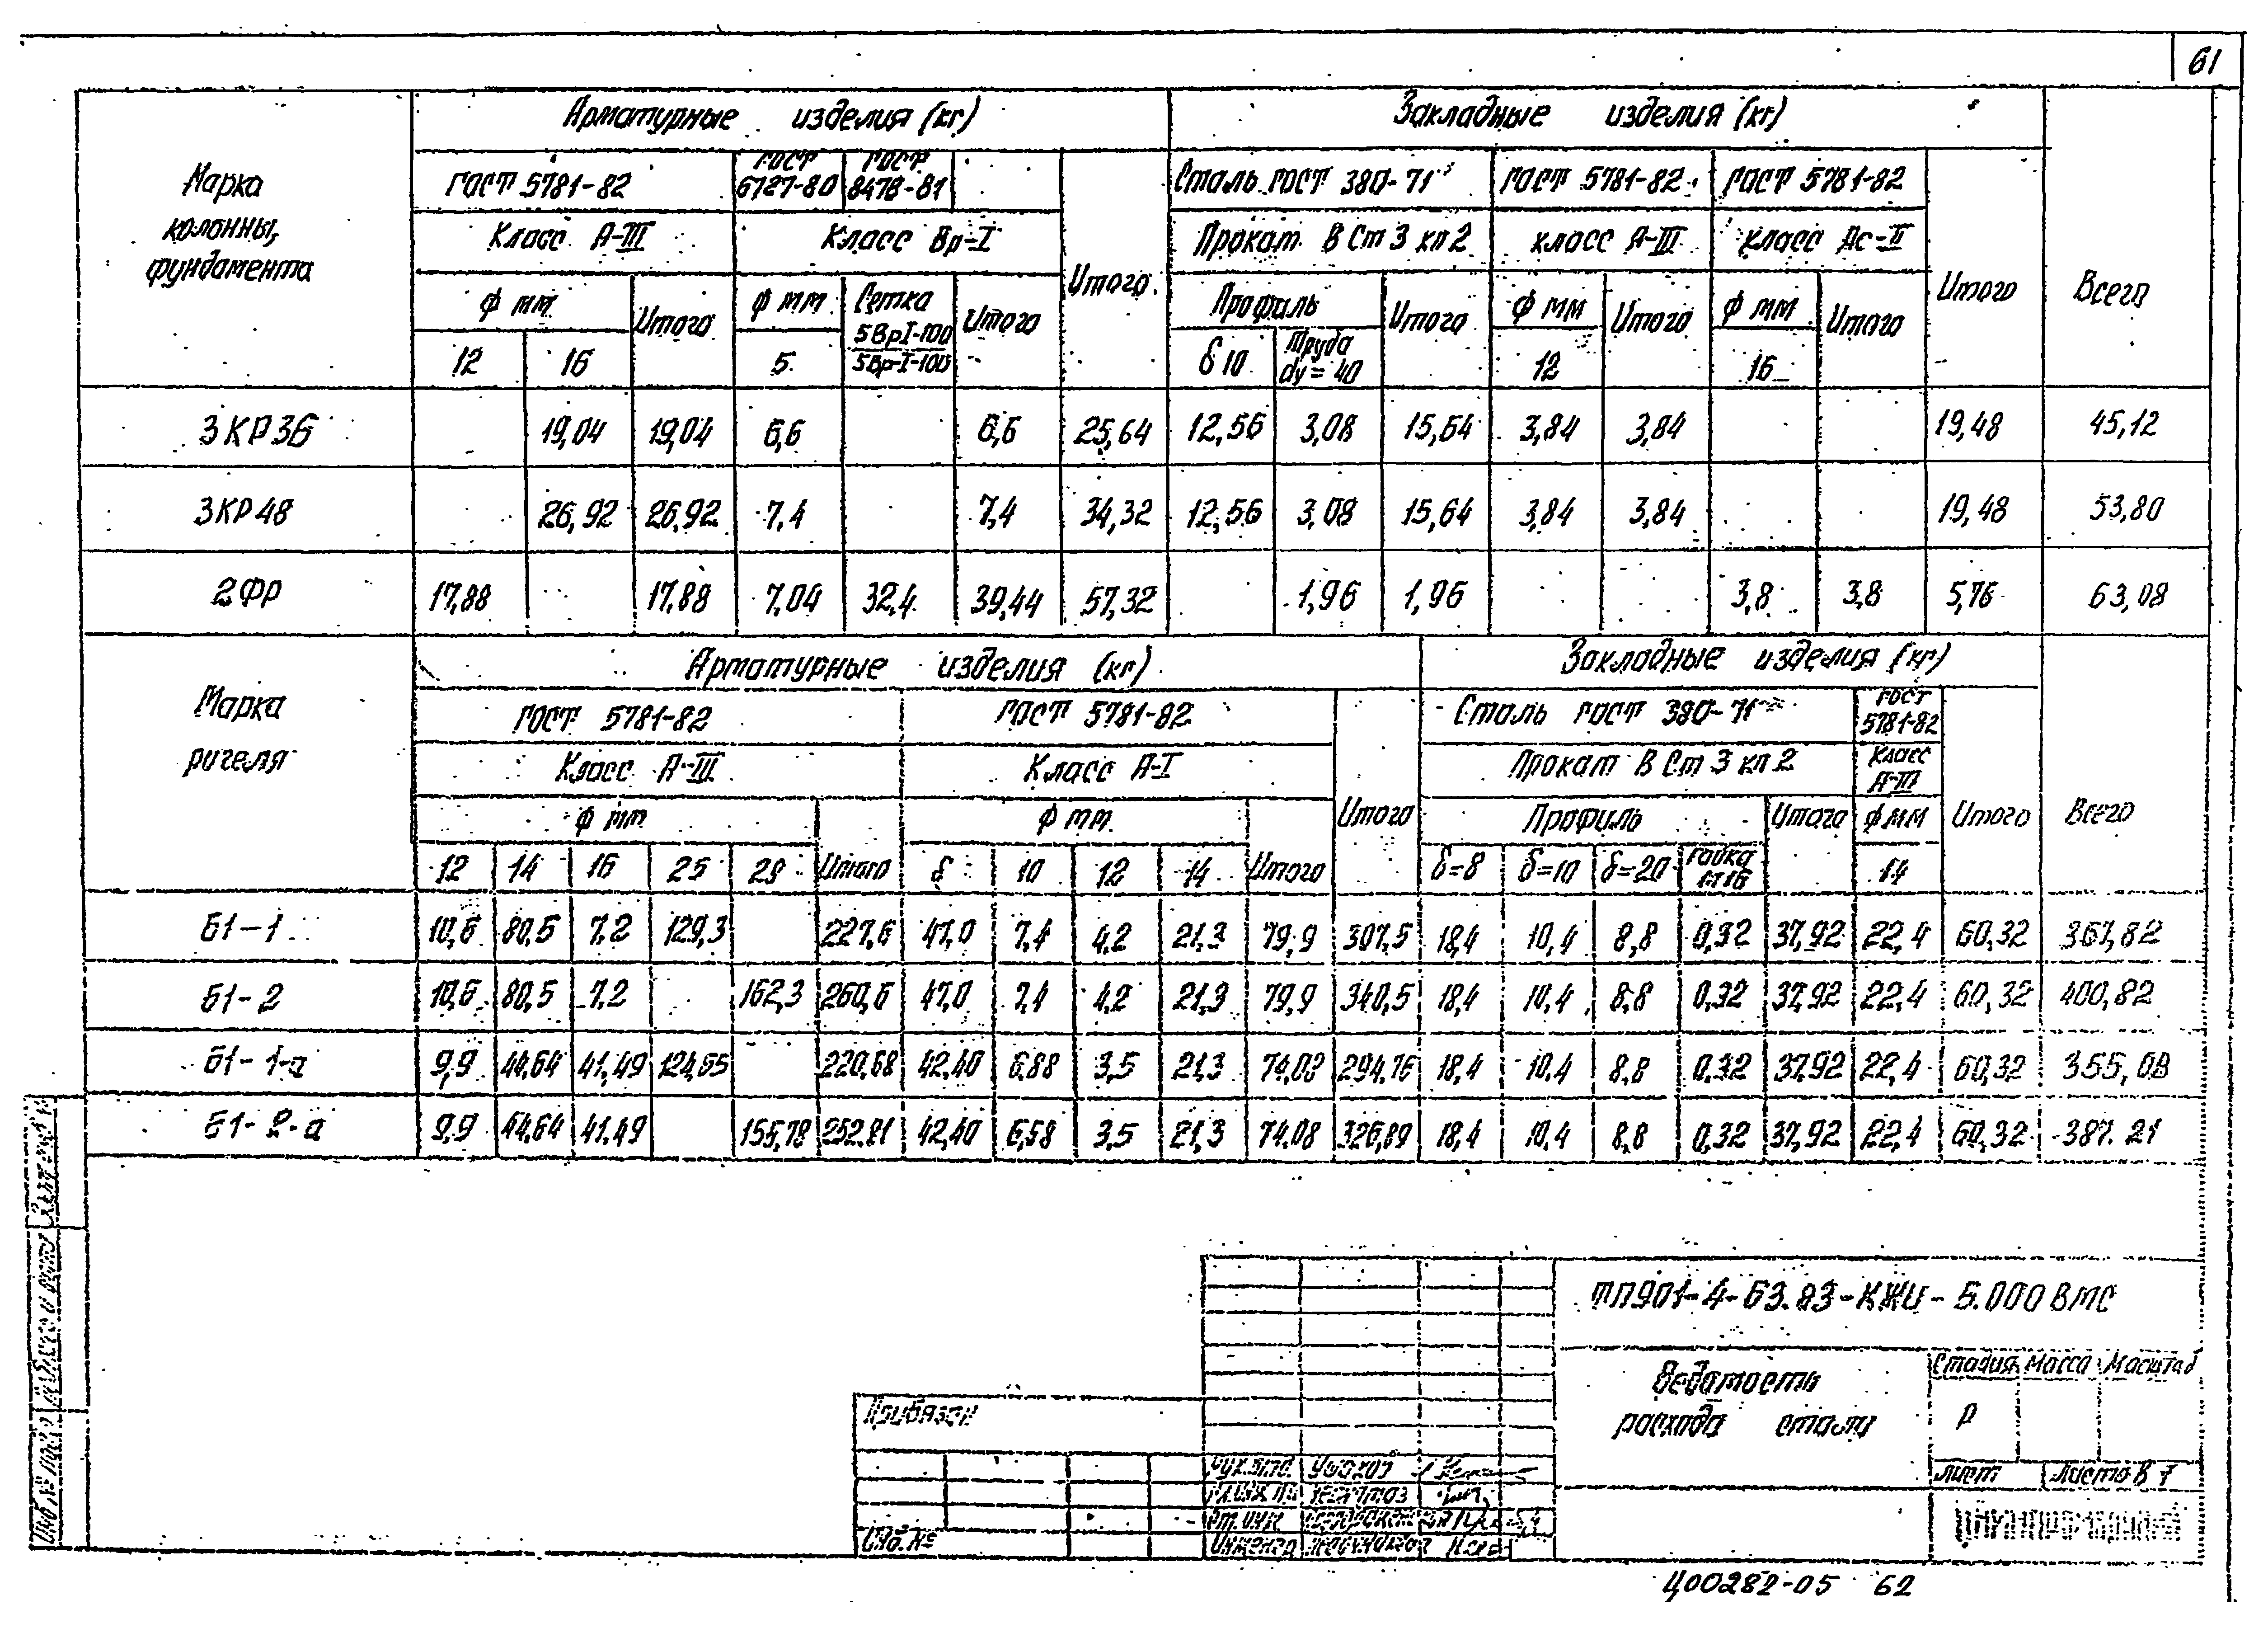 61
Марка колонны, фундамента
Арматурные изделия (кг)
Закладные изделия (кг)
Всего
ГОСТ 5781-82
ГОСТ 6727-80
ГОСТ 8478-81
Итого
Сталь ГОСТ 380-71
ГОСТ 5781-82
ГОСТ 5781-82
Итого
Класс А-III
Класс Вр-I
Прокат В Ст 3 кп 2
класс А-III
класс Ас-II
ф мм
Итого
ф мм
Сетка 5ВрI-100 / 5Вр-I-100
Итого
Профиль
Итого
ф мм
Итого
ф мм
Итого
12 16 5 δ 10 Труба dy = 40 12 16
3КР36 19,04 19,04 6,6 6,6 25,64 12,56 3,08 15,64 3,84 3,84 19,48 45,12
3КР48 26,92 26,92 7,4 7,4 34,32 12,56 3,08 15,64 3,84 3,84 19,48 53,80
2ФР 17,88 17,88 7,04 32,4 39,44 57,32 1,96 1,96 3,8 3,8 5,76 63,08
Марка ригеля
Арматурные изделия (кг)
Закладные изделия (кг)
Всего
ГОСТ 5781-82
ГОСТ 5781-82
Итого
Сталь ГОСТ 380-71
ГОСТ 5781-82
Итого
Класс А-III
Класс А-I
Прокат В Ст 3 кп 2
Класс А-III
ф мм
Итого
ф мм
Итого
Профиль
Итого
ф мм
12 14 16 25 28 10 12 14 δ=8 δ=10 δ=20 гайка М16 14
Б1-1 10,6 80,5 7,2 129,3 227,6 47,0 7,4 4,2 21,3 79,9 307,5 18,4 10,4 8,8 0,32 37,92 22,4 60,32 367,82
Б1-2 10,6 80,5 7,2 162,3 260,6 47,0 7,4 4,2 21,3 79,9 340,5 18,4 10,4 8,8 0,32 37,92 22,4 60,32 400,82
Б1-1-а 9,9 44,64 41,49 124,65 220,68 42,40 6,88 3,5 21,3 74,08 294,76 18,4 10,4 8,8 0,32 37,92 22,4 60,32 355,08
Б1-2-а 9,9 44,64 41,49 155,78 252,81 42,40 6,58 3,5 21,3 74,08 326,89 18,4 10,4 8,8 0,32 37,92 22,4 60,32 387.21
ТП901-4-63.83-КЖИ-5.000ВМС
Ведомость расхода стали
Стадия Масса Масштаб
Р
Лист Листов 7
Привязан
Инв. №
Ст. инж
Инженер
Инв. № подл
Ц00282-05 62